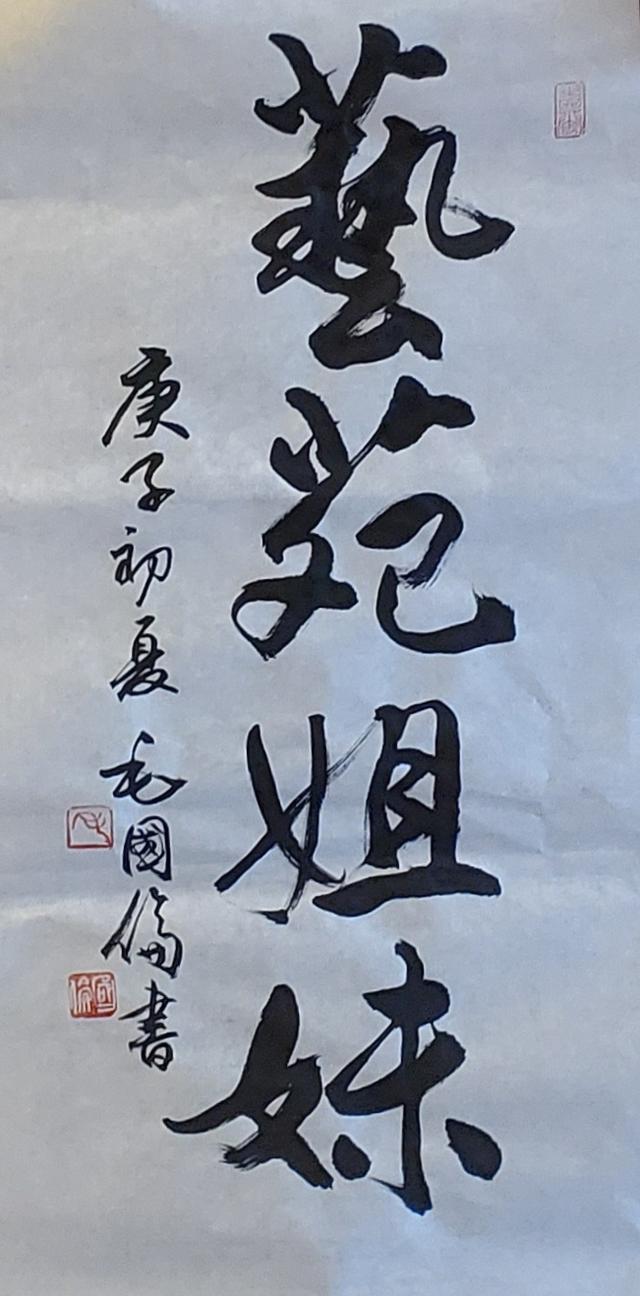 藝苑姐妹
庚子初夏 毛國倫書